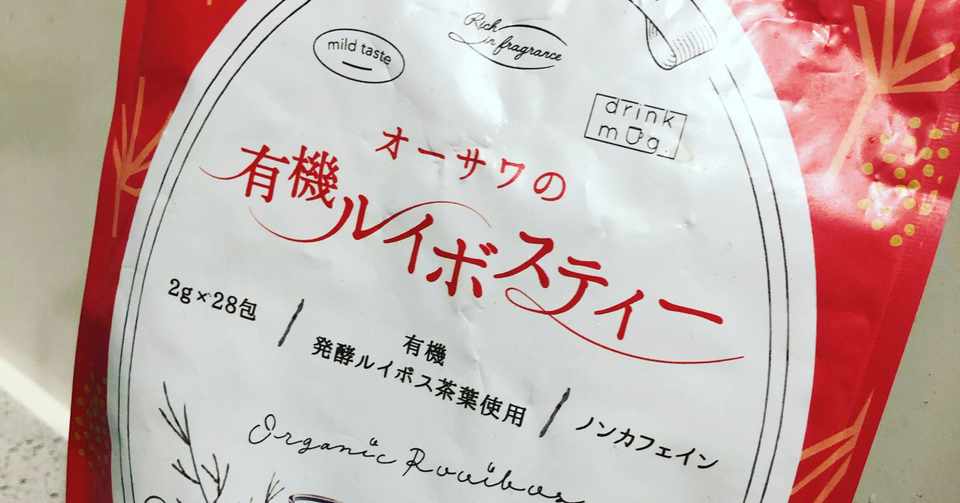 mild taste
Rich
in fragrance
drink
mug.
オーサワの
有機ルイボスティー
2g×28包
有機
発酵ルイボス茶葉使用
ノンカフェイン
Organic Rooibos